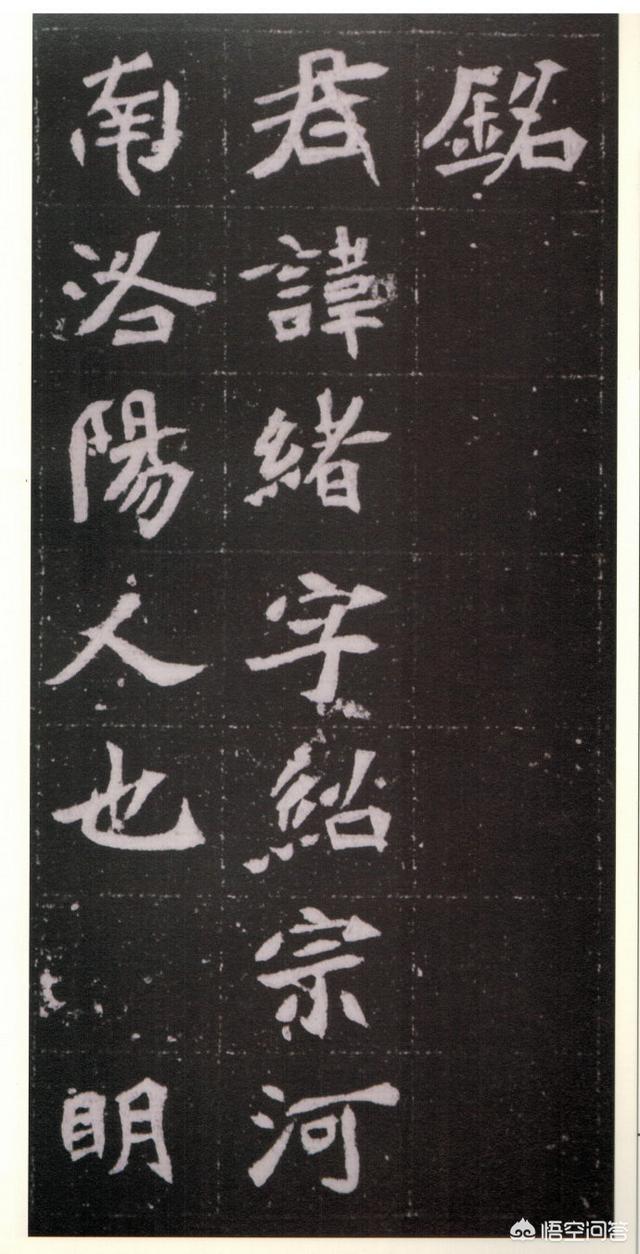 銘
君諱緒字紹宗河
南洛陽人也 明
悟空问答